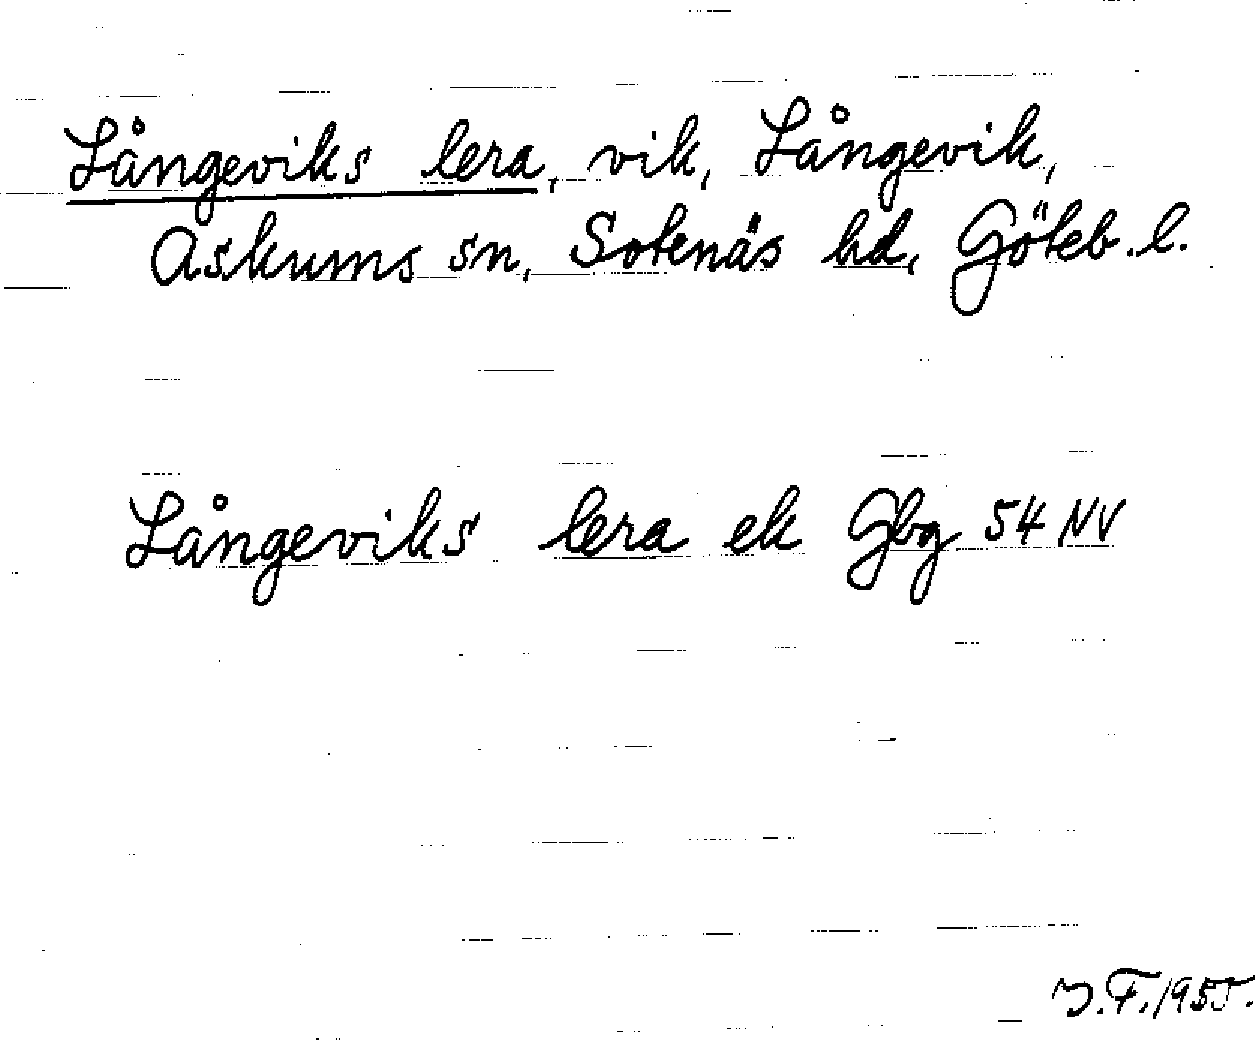 Långeviks lera, vik, Långevik,
Askums sn, Sotenäs hd, Göteb. l.
Långeviks lera ek Gbg 54 NV
J.F. 1955.